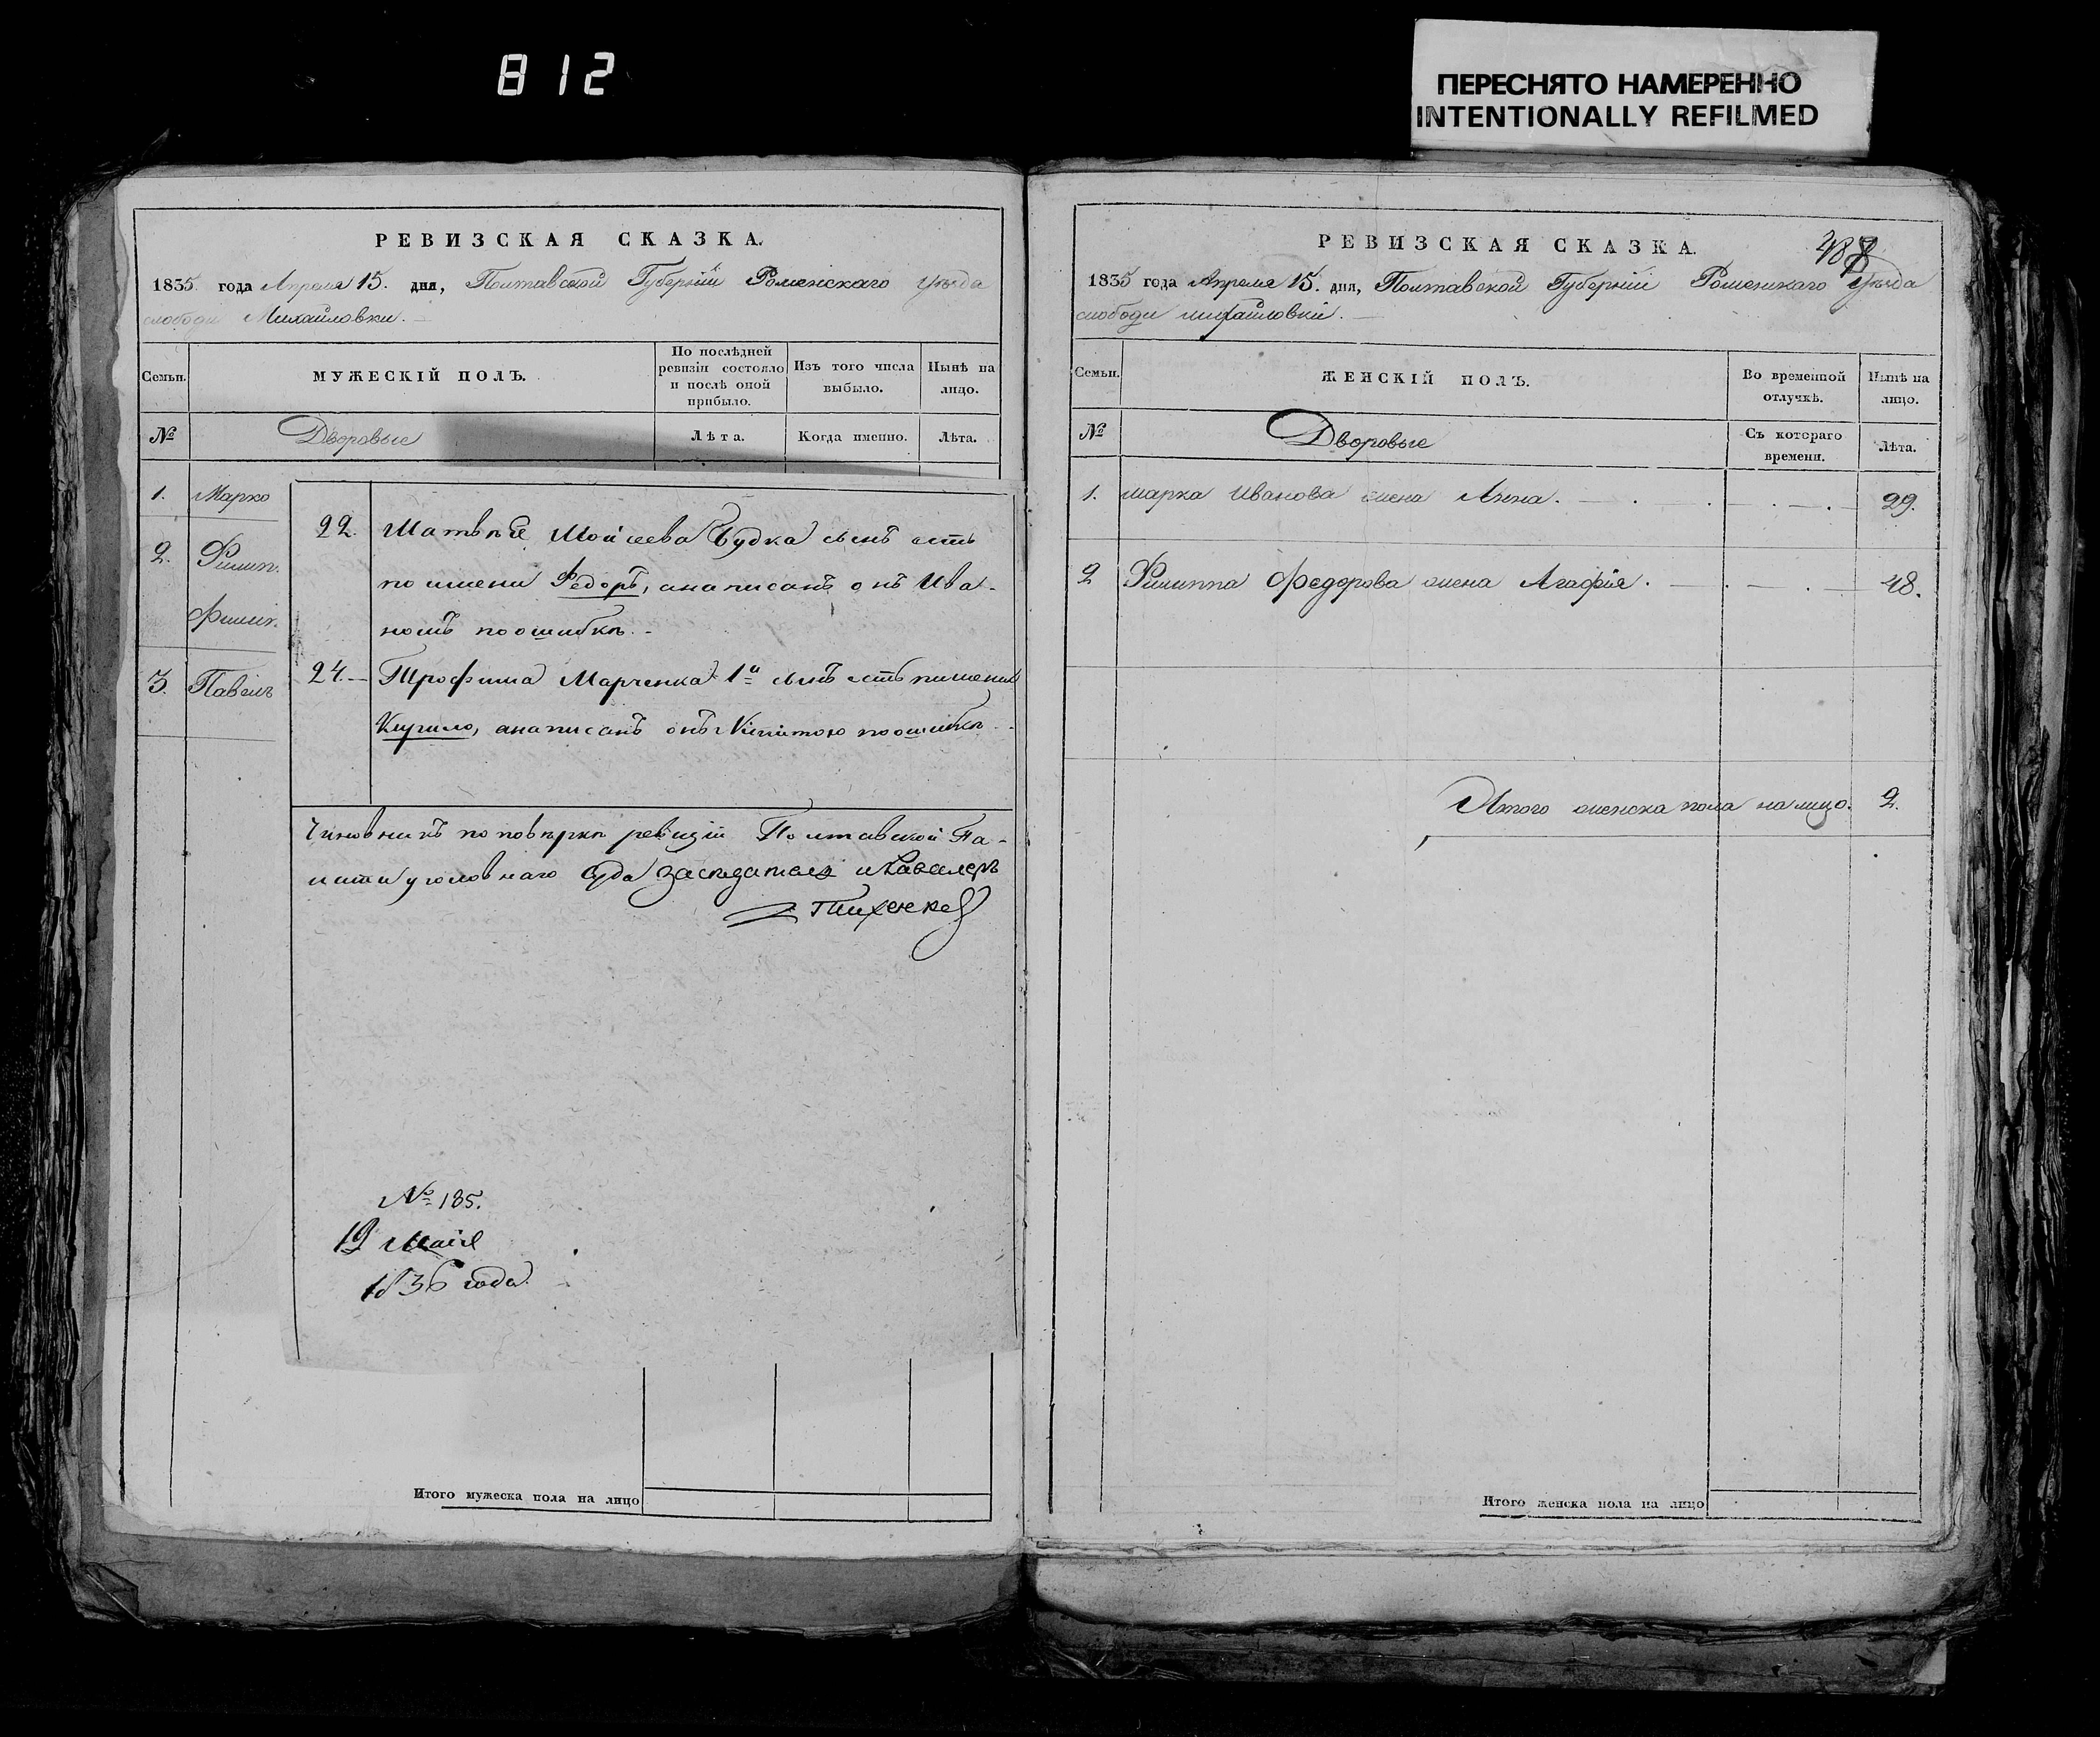 812
ПЕРЕСНЯТО НАМЕРЕННО
INTENTIONALLY REFILMED
РЕВИЗСКАЯ СКАЗКА.
1835 года Апреля 15. дня, Полтавской Губерніи Роменскаго уѣзда
слободи Михайловки.
Семьи.
МУЖЕСКІЙ ПОЛЪ.
По послѣдней
ревизіи состояло
и послѣ оной
прибыло.
Изъ того числа
выбыло.
Нынѣ на
лицо.
№
Дворовые
Лѣта.
Когда именно.
Лѣта.
1. Марко
2. Филип.
Филип.
3. Павелъ
22. Матвѣя Моисеева Будка сынъ есть
по имени Федоръ, а написанъ онъ Ива-
номъ по ошибкѣ.
24. Трофима Марченка 1й сынъ есть по имени
Кирило, а написанъ онъ Никитою по ошибкѣ.
Чиновникъ по повѣркѣ ревизіи Полтавской Па-
латы уголовнаго Суда засѣдатель и Кавалеръ
№ 185.
19 Маія
1836 года.
Итого мужеска пола на лицо
РЕВИЗСКАЯ СКАЗКА.
488
1835 года Апреля 15. дня, Полтавской Губерніи Роменскаго уѣзда
слободи Михайловки.
Семьи.
ЖЕНСКІЙ ПОЛЪ.
Во временной
отлучкѣ.
Нынѣ на
лицо.
№
Дворовые
Съ котораго
времени.
Лѣта.
1. Марка Иванова жена Анна. 29.
2 Филиппа Федорова жена Агафія. 48.
Итого женска пола на лицо. 2.
Итого женска пола на лицо